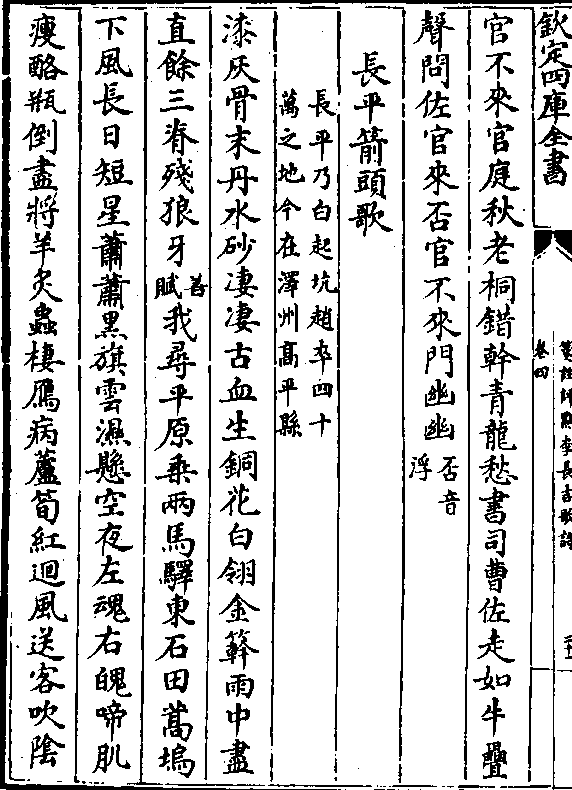 欽定四庫全書
箋註評點李長吉歌詩
卷四
官不來官庭秋老桐錯幹青龍愁書司曹佐走如牛疊
聲問佐官來否官不來門幽幽否音浮
長平箭頭歌
長平乃白起坑趙卒四十
萬之地今在澤州高平縣
漆灰骨末丹水砂凄凄古血生銅花白翎金簳雨中盡
直餘三脊殘狼牙善賦我尋平原乗兩馬驛東石田蒿塢
下風長日短星蕭蕭黑旗雲濕懸空夜左魂右魄啼肌
瘦酪瓶倒盡將羊炙蟲棲鴈病蘆筍紅迴風送客吹陰